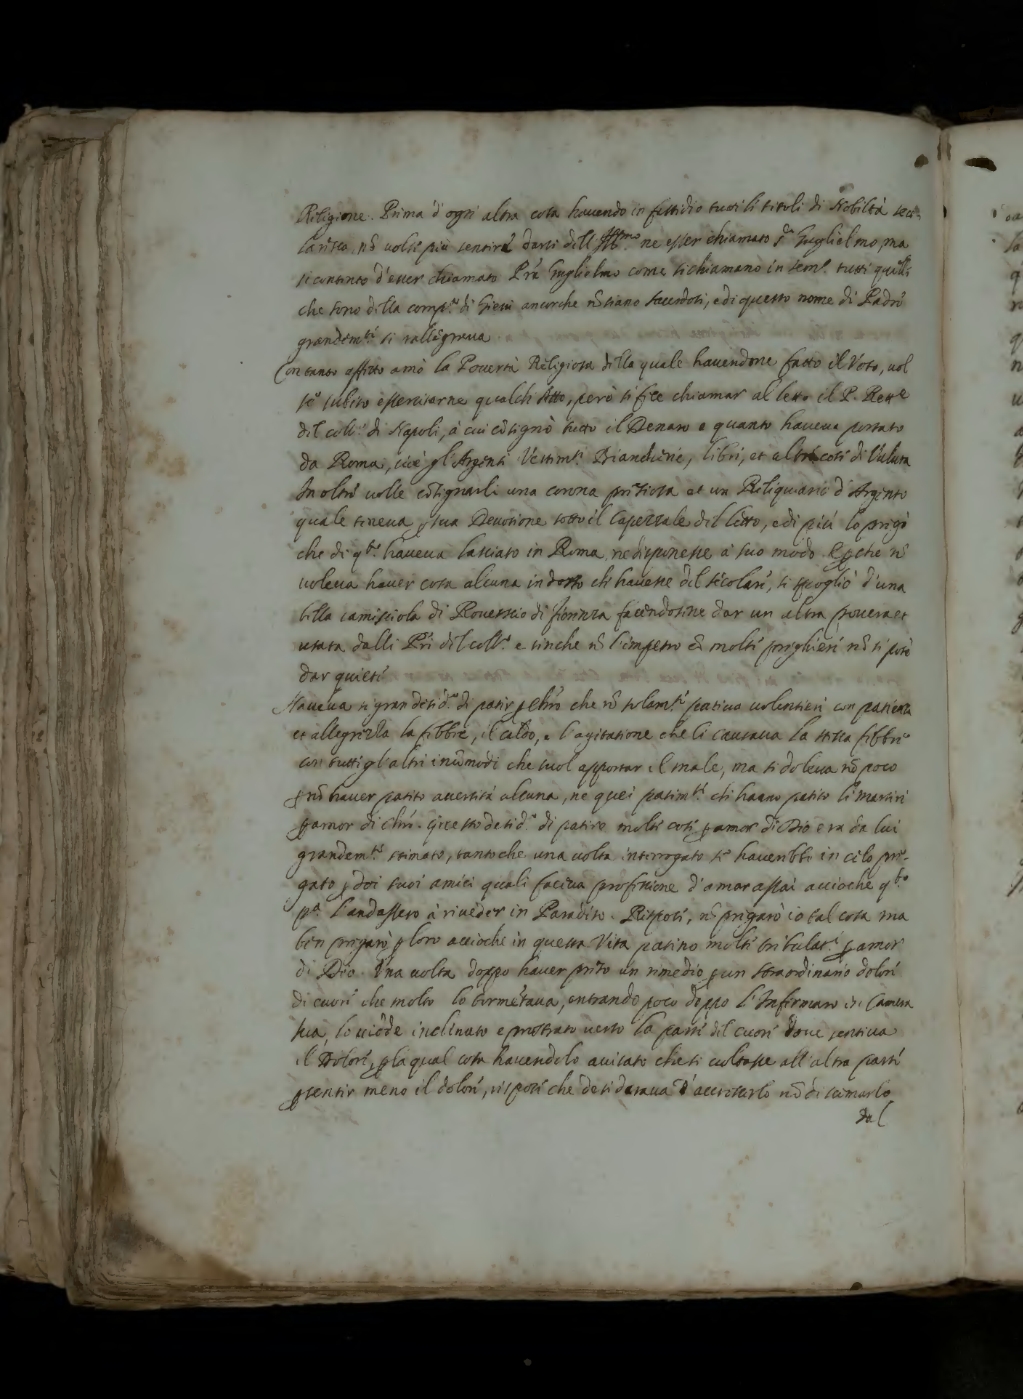 Religione. Prima d'ogni altra cosa havendo in fastidio tutti li titoli di Nobiltà seco-
laresca, nõ volse più sentire darsi dell' Ill.mo ne esser chiamato Guglielmo, ma
si contentò d'esser chiamato Prẽ Guglielmo come si chiamano in tutti quelli
che sono della comp.a di Giesù ancorche nõ siano sacerdoti, e di questo nome di Padre
grandem.te si rallegrava
Con tanto affetto amò la Povertà Religiosa della quale havendone fatto il Voto, vol
se subito essercitarne qualch' Atto, però si fece chiamar al letto il P. Rett.e
del coll.o di Napoli, à cui cõsignò tutto il Denaro e quanto haveva portato
da Roma, cioè gl'Argenti Vestim.ti Biancherie, libri, et altre cose di valuta
In oltre volle cõsignarli una corona pretiosa et un Reliquiario d'Argento
quale teneva p sua Devotione sotto il Capezzale del letto, e di più lo pregò
che di q.to haveva lasciato in Roma ne disponesse à suo modo. E pche nõ
voleva haver cosa alcuna indosso ch' havesse del secolare, si spogliò d'una
bella camisciola di Rovescio di fiorenza facendosene dar un altra povera et
usata dalli Pri del coll.o e sinche nõ l'impetrò cõ molti prighieri nõ si potè
dar quiete
Haveva si gran desid.o di patir p Chro che nõ solam.te pativa volentieri con patienza
et allegrezza la febbre, il caldo, e l'agitatione che li causava la stessa febbre
con tutti gl'altri incõmodi che suol apportar il male, ma si doleva nõ poco
p nõ haver patito aversità alcuna, ne quei patim.ti ch' hanno patito li martiri
p amor di Chro. Questo desid.o di patire molte cose p amor di Dio era da lui
grandem.te stimato, tanto che una volta interrogato se haverebbe in cielo pre-
gato p doi suoi amici quali faceva professione d'amar assai accioche q.to
p.a l'andassero à riveder in Paradiso. Rispose, nõ pregarò io tal cosa ma
ben pregarò p loro accioche in questa Vita patino molte tribulat.i p amor
di Dio. Una volta doppo haver preso un rimedio p un straordinario dolore
di cuore che molto lo tormẽtava, entrando poco doppo l'Infermaro in Camera
sua, lo vidde inclinato e prostrato verso la parte del cuore dove sentiva
il Dolore, p la qual cosa havendolo avisato che si voltasse all'altra parte
p sentir meno il dolore, rispose che desiderava d'accrescerlo nõ di scemarlo
dal